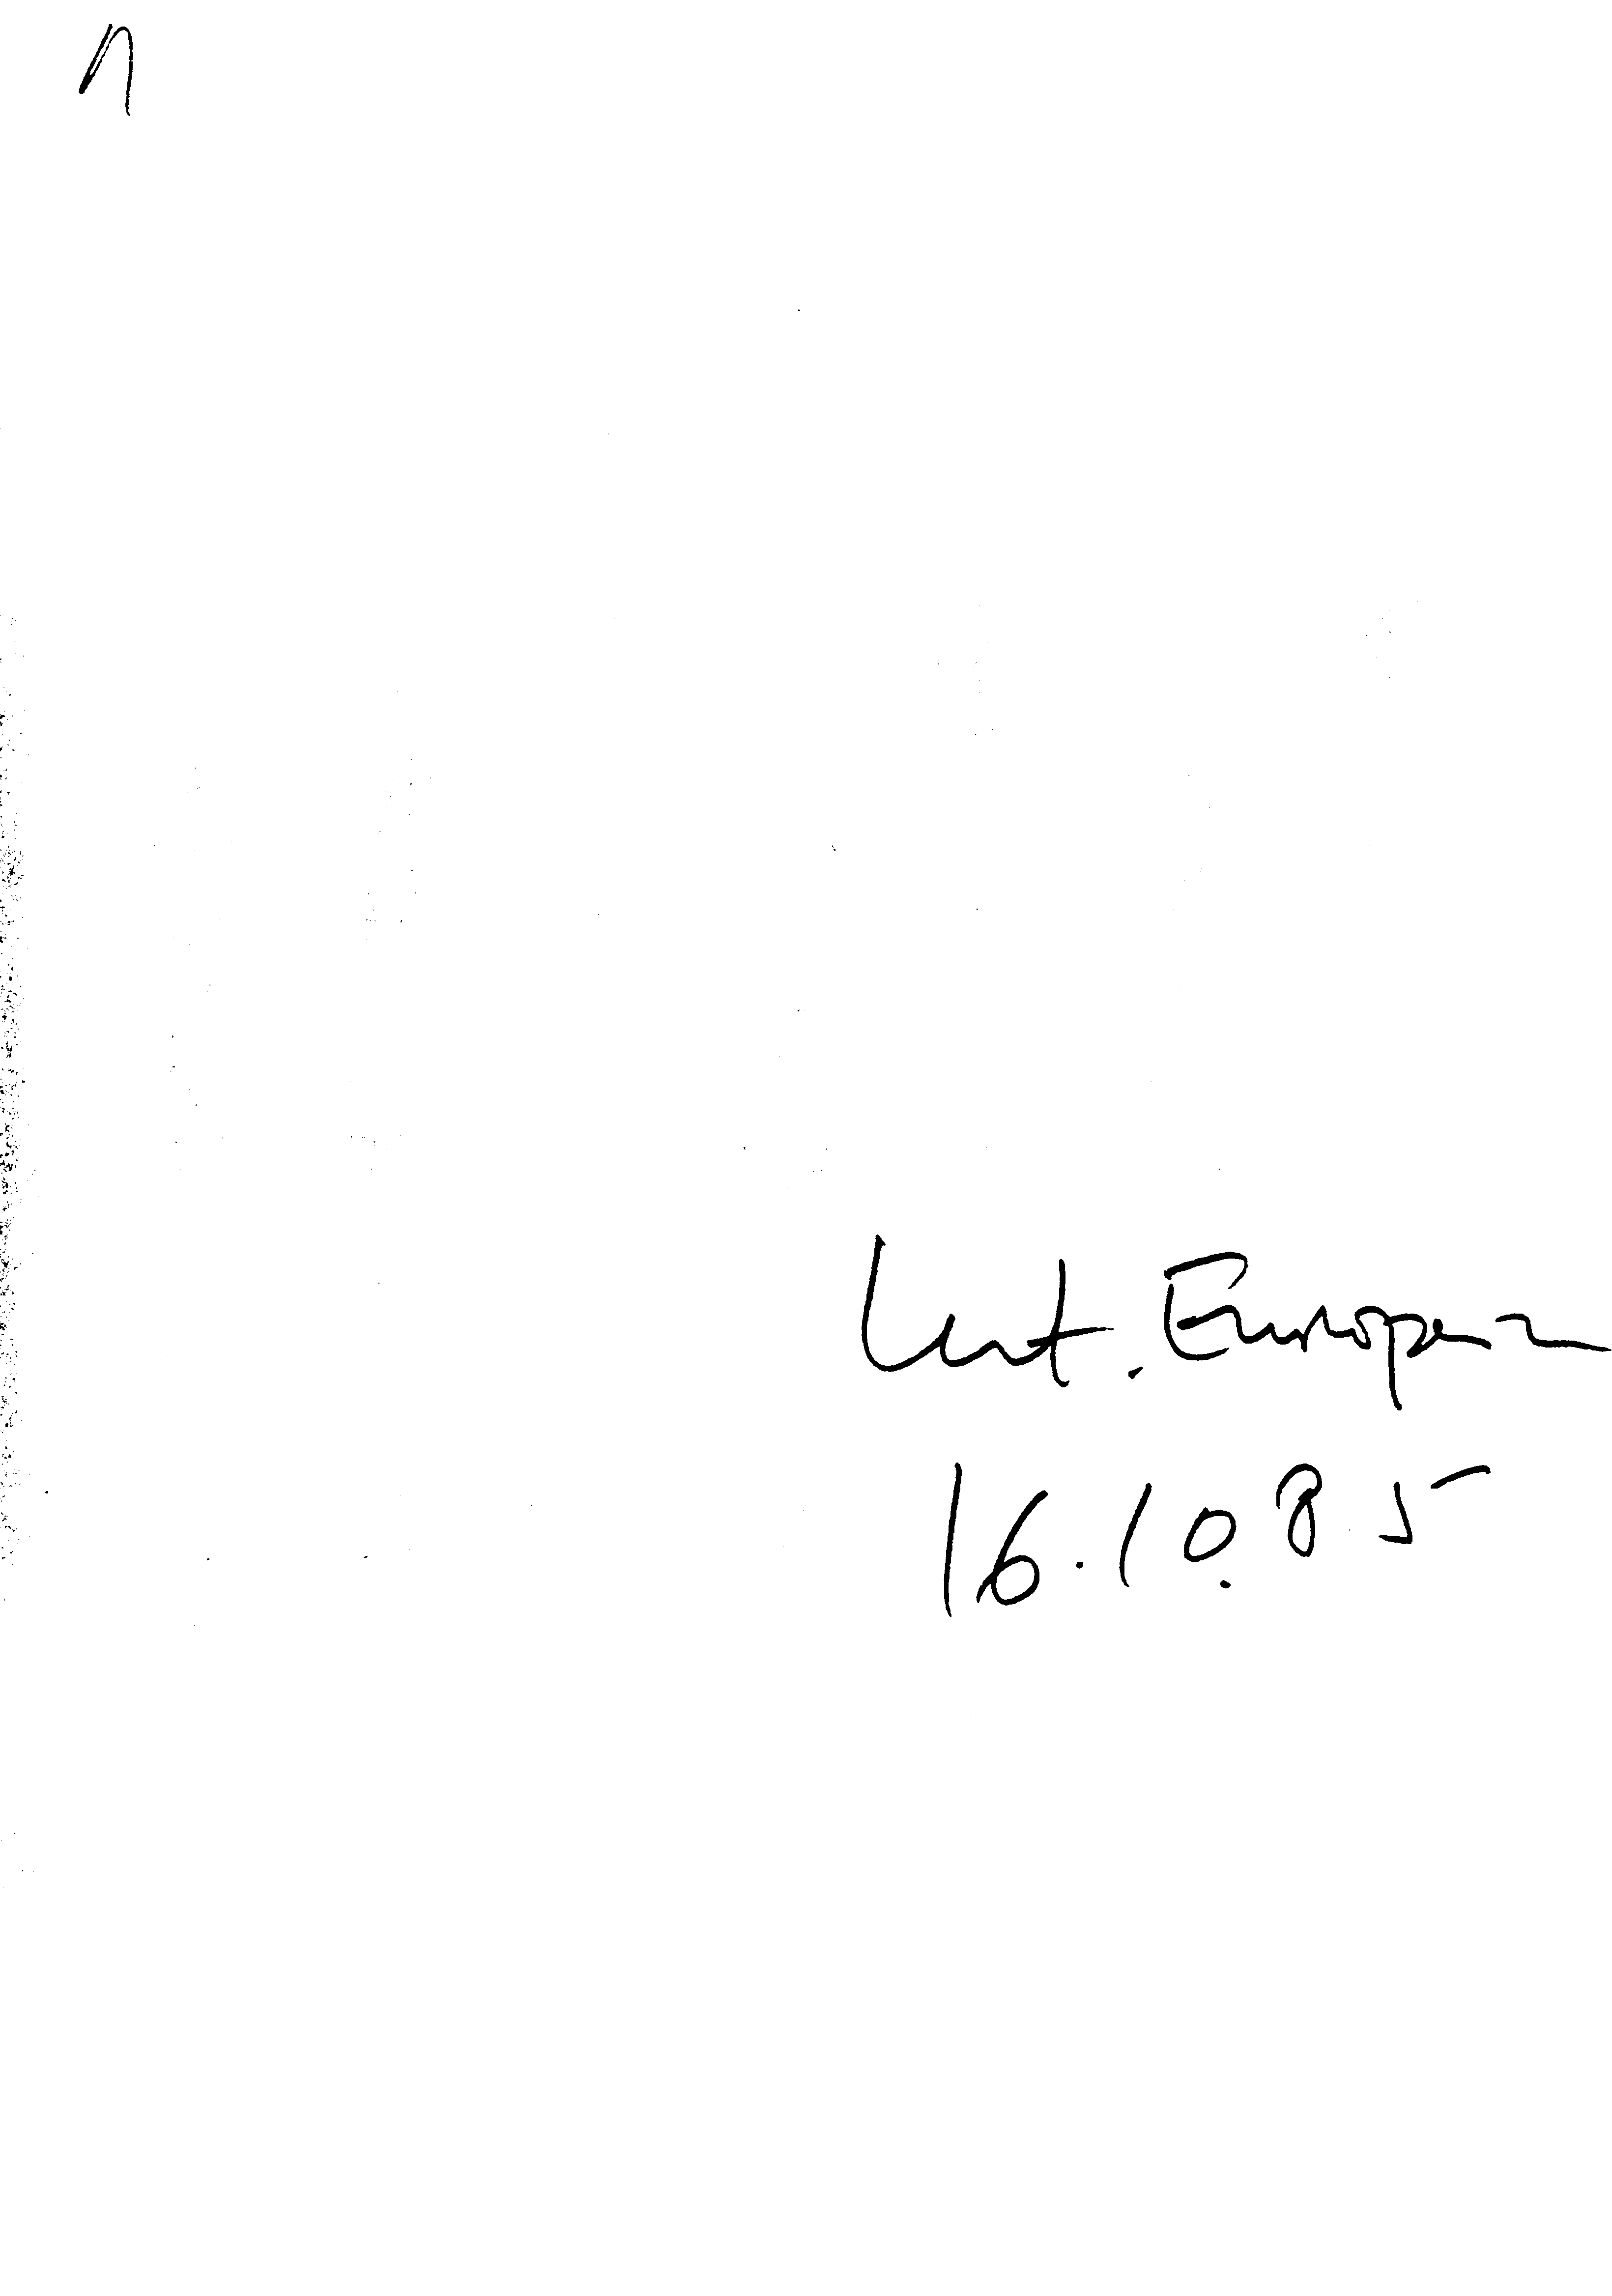 1
Int. European
16.10.85